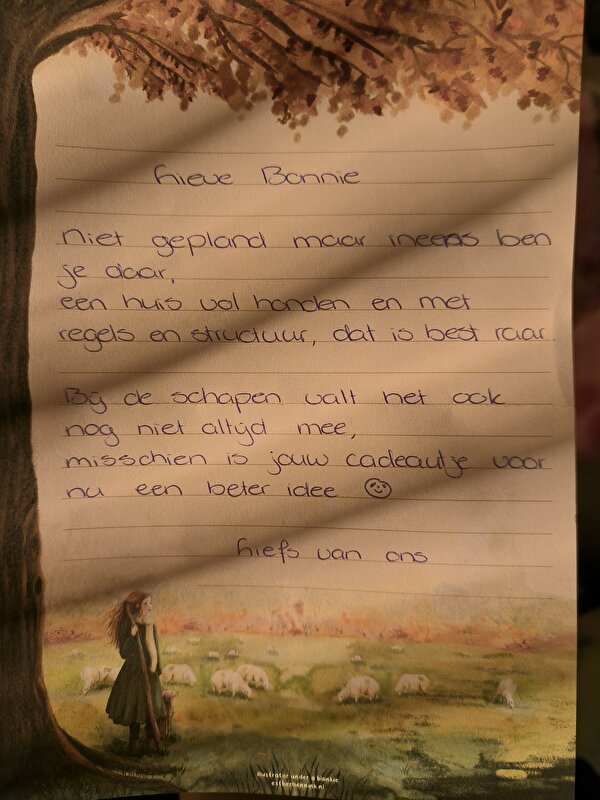 Lieve Bonnie
Niet gepland maar ineens ben
je daar,
een huis vol honden en met
regels en structuur, dat is best raar.
Bij de schapen valt het ook
nog niet altijd mee,
misschien is jouw cadeautje voor
nu een beter idee
Liefs van ons
Illustrator under a blankie
estherbennink.nl